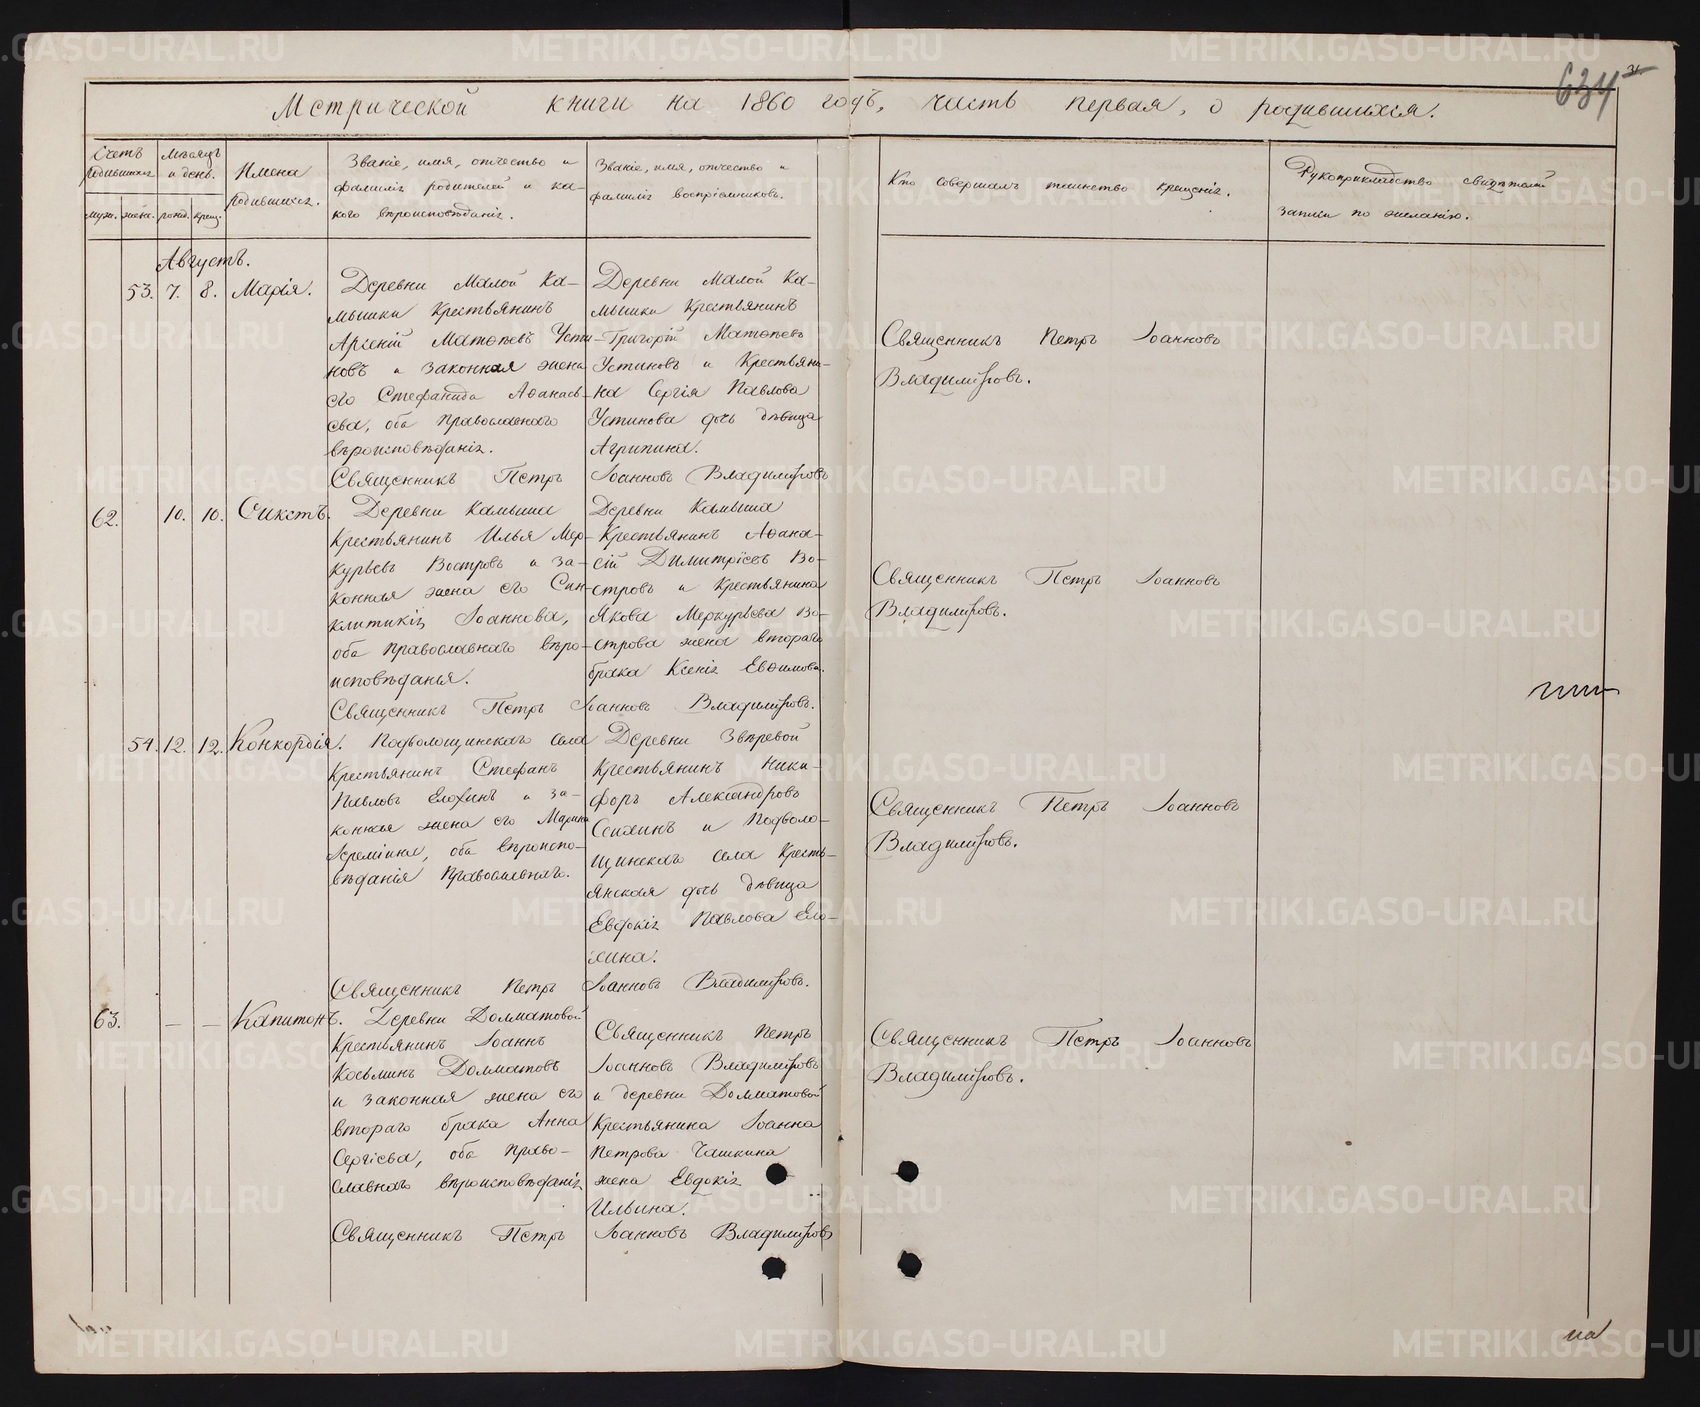 634
Метрической книги на 1860 годъ, часть первая, о родившихся.
Счетъ родившихся
Мѣсяцъ и день.
Имена родившихся.
Званіе, имя, отчество и
фамилія родителей и ка-
кого вѣроисповѣданія.
Званіе, имя, отчество и
фамилія воспріемниковъ.
Кто совершалъ таинство крещенія.
Рукоприкладство свидѣтелей
записи по желанію.
муж. жен. рожд. крещ.
Августъ.
53. 7. 8. Марія.
Деревни Малой Ка-
мышки Крестьянинъ
Арсеній Матѳеевъ Усти-
новъ и законная жена
его Стефанида Аѳанась-
ева, оба православнаго
вѣроисповѣданія.
Деревни Малой Ка-
мышки Крестьянинъ
Григорій Матѳеевъ
Устиновъ и Крестьяни-
на Сергія Павлова
Устинова дочь дѣвица
Агрипина.
Священникъ Петръ Іоанновъ
Владиміровъ.
Священникъ Петръ Іоанновъ Владиміровъ
62. 10. 10. Сикстъ.
Деревни Камышки
Крестьянинъ Илья Мер-
курьевъ Востровъ и за-
конная жена его Син-
клитикія Іоаннова,
оба православнаго вѣро-
исповѣданія.
Деревни Камышка
Крестьянинъ Аѳана-
сій Димитріевъ Во-
стровъ и Крестьянина
Якова Меркурьева Во-
строва жена втораго
брака Ксенія Евѳимова.
Священникъ Петръ Іоанновъ
Владиміровъ.
Священникъ Петръ Іоанновъ Владиміровъ.
54. 12. 12. Конкордія.
Подволошинскаго села
Крестьянинъ Стефанъ
Павловъ Елохинъ и за-
конная жена его Марина
Іереміина, оба вѣроиспо-
вѣданія православнаго.
Деревни Звѣревой
Крестьянинъ Ники-
форъ Александровъ
и Подволо-
шинскаго села Кресть-
янская дочь дѣвица
Евдокія Павлова Ело-
хина.
Священникъ Петръ Іоанновъ
Владиміровъ.
Священникъ Петръ Іоанновъ Владиміровъ.
63. — — Капитонъ.
Деревни Долматовой
Крестьянинъ Іоаннъ
Косьминъ Долматовъ
и законная жена его
втораго брака Анна
Сергіева, оба право-
славнаго вѣроисповѣданія
Священникъ Петръ
Іоанновъ Владиміровъ
и деревни Долматовой
Крестьянина Іоанна
Петрова Чашкина
жена Евдокія
Ильина.
Священникъ Петръ Іоанновъ
Владиміровъ.
Священникъ Петръ Іоанновъ Владиміровъ
на
METRIKI.GASO-URAL.RU